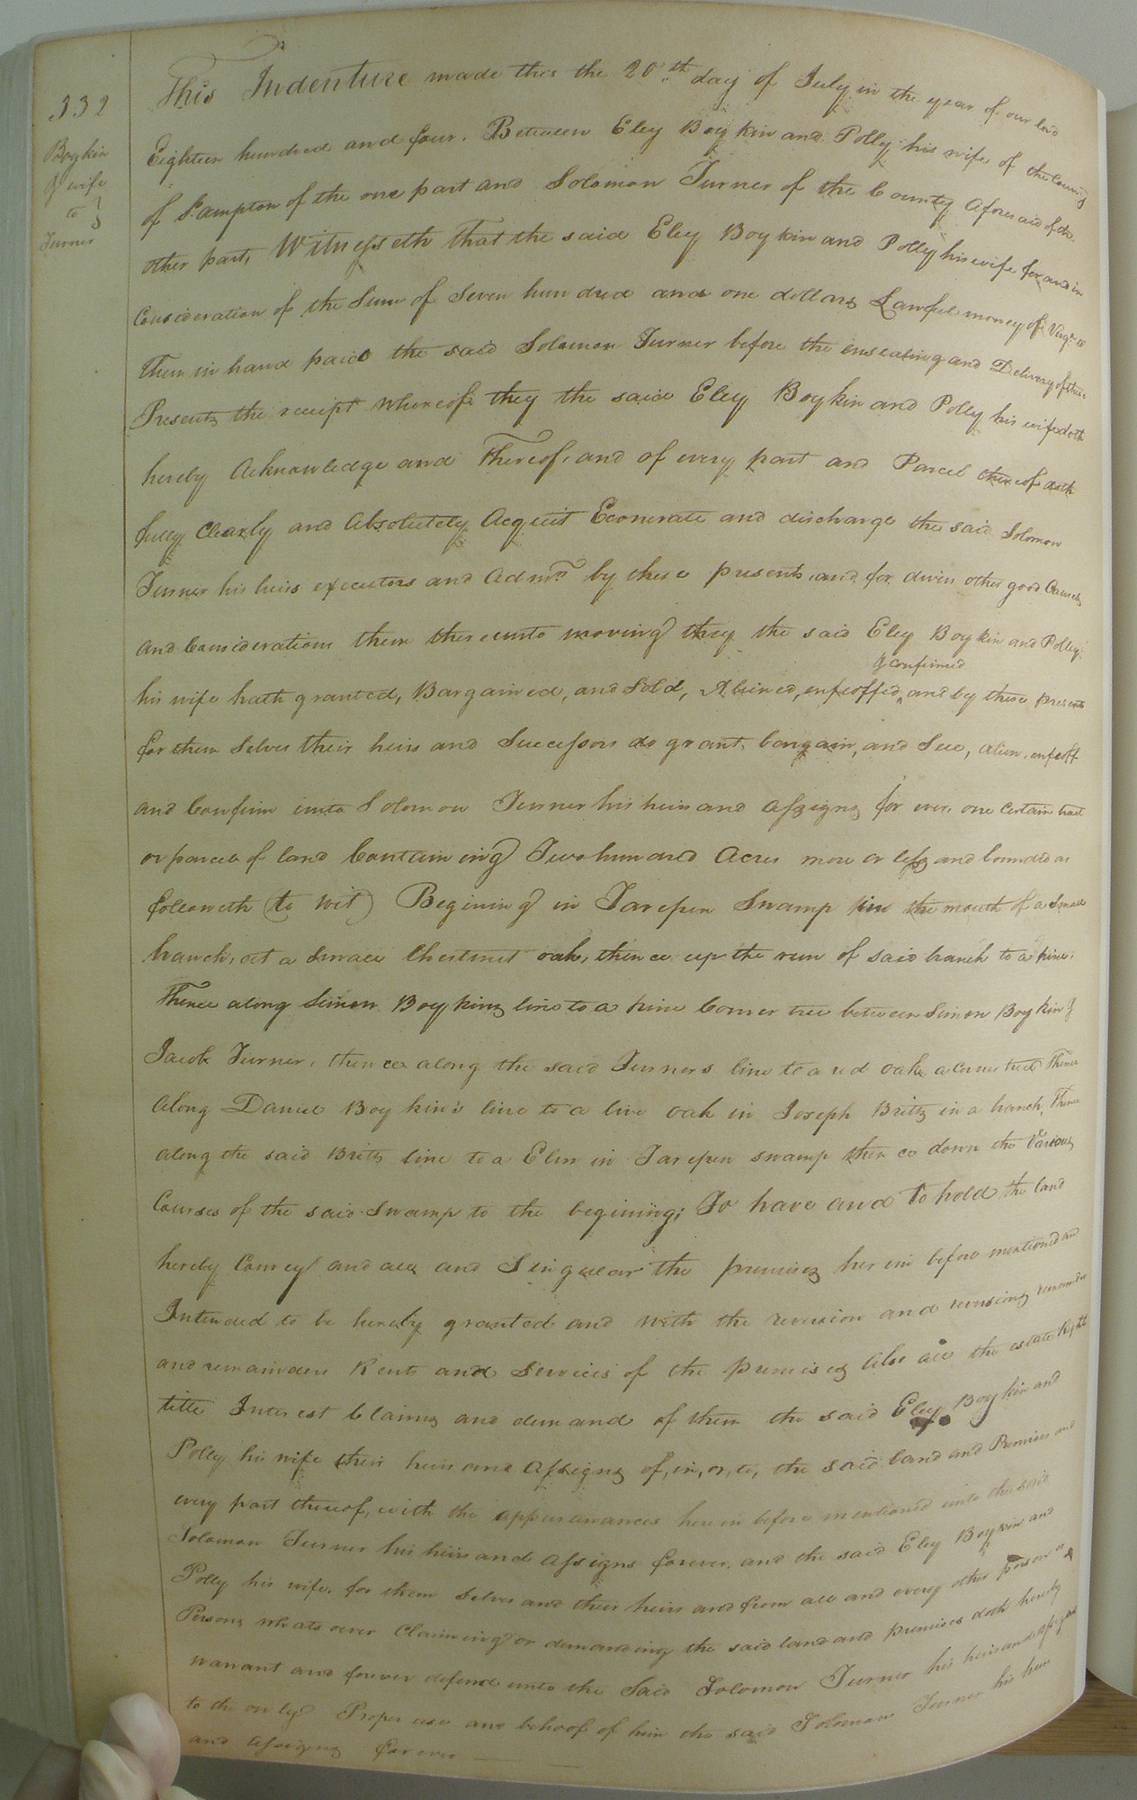 332
Boykin
& wife
to }
Turner
This Indenture made this the 20th day of July in the year of our lord
Eighteen hundred and four. Between Eley Boykin and Polly his wife of the County
of S.ampton of the one part and Solomon Turner of the County aforesaid of the
other part, Witnesseth That the said Eley Boykin and Polly his wife for and in
Consideration of the Sum of Seven hundred and one dollars Lawful money of Virga to
Them in hand paid the said Solomon Turner before the ensealing and Delivery of these
Presents the receipt whereof they the said Eley Boykin and Polly his wife doth
hereby Acknowledge and Thereof, and of every part and Parcel thereof doth
fully Clearly and Absolutely Acquit Exonerate and discharge the said Solomon
Turner his heirs executors and Admrs by these presents, and for divers other good Causes
and Considerations them thereunto moving they the said Eley Boykin and Polly
& confirmed
his wife hath granted, Bargained, and Sold, Aliened, enfeoffed, and by these presents
for them Selves their heirs and Successors do grant, bargain, and Sell, alien, enfeoff
and Confirm unto Solomon Turner his heirs and assigns for ever, one certain tract
or parcel of land Containing Two hundred Acres more or less and bounded as
followeth (to wit) Begining in Tarepen Swamp in the mouth of a Small
branch, at a Small Chestnut oak, thence up the run of said branch to a pine,
Thence along Simon Boykins line to a pine Corner tree between Simon Boykin &
Jacob Turner, thence along the said Turners line to a red oak a corner tree Thence
Along Daniel Boykin's line to a live oak in Joseph Britts in a branch, Thence
along the said Britts line to a Elm in Tarepen swamp thence down the Various
Courses of the said Swamp to the begining; To have and to hold the land
hereby Conveyd and all and Singular the premises herein before mentioned and
Intended to be hereby granted and with the reversion and reversions remainder
and remainders Rents and Services of the premises also all the estate Right
title Interest Claims and demand of them the said Eley Boykin and
Polly his wife their heirs and Assigns of, in, or, to, the said land and Premises and
every part thereof, with the appurunances herein before mentioned unto the said
Solomon Turner his heirs and Assigns forever, and the said Eley Boykin and
Polly his wife, for them Selves and their heirs and from all and every other person or
Persons whatsoever Claiming or demanding the said land and premises doth hereby
warrant and forever defend unto the Said Solomon Turner his heirs and assigns
to the only Proper use and behoof of him the said Solomon Turner his heirs
and Assigns forever